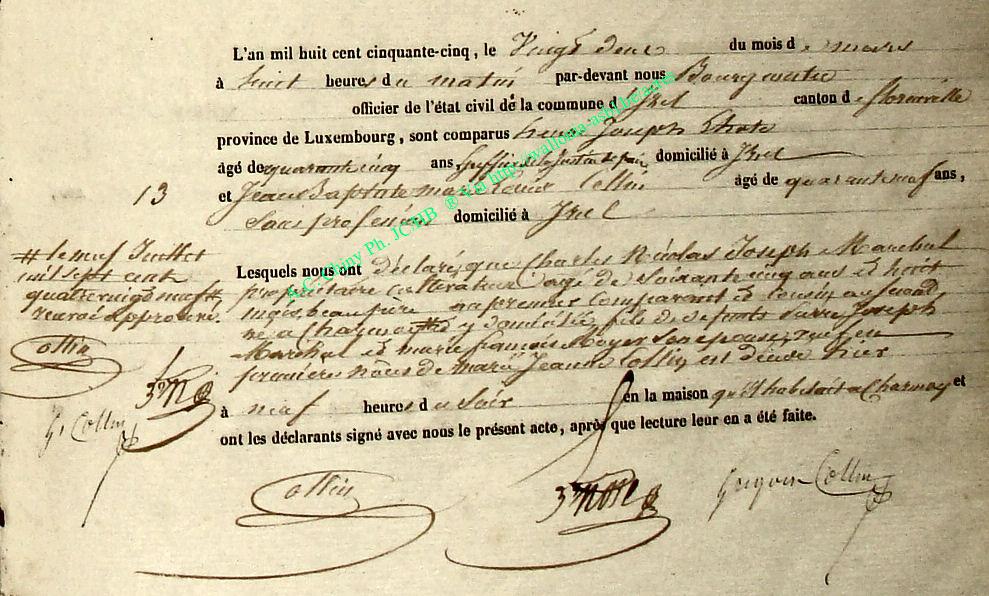 L'an mil huit cent cinquante-cinq, le Vingt deux du mois de mars
à huit heures du matin par-devant nous Bourgmestre
officier de l'état civil de la commune d'Izel canton de florenville
province de Luxembourg, sont comparus henri Joseph
âgé de quarante cinq ans, domicilié à Izel
13
et Jean Baptiste marie Louis Collin âgé de quarante neuf ans,
Sans profession domicilié à Izel
# le neuf Juillet
mil sept cent
quatre vingt neuf
renvoi approuvé.
Collin
G. Collin
Lesquels nous ont déclaré que Charles Nicolas Joseph Marechal
propriétaire cultivateur agé de Soixante cinq ans et huit
mois, beau père du premier Comparant et cousin au second
né a Charmois # y domicilié fils de defunts Joseph
Marechal et marie françoise Son épouse, veuf en
premières noces de marie Jeanne Collin est décédé hier
à neuf heures du Soir en la maison qu'il habitait a Charmoy et
ont les déclarants signé avec nous le présent acte, après que lecture leur en a été faite.
Collin
Collin
A.C. Chiny Ph. JCMB ® Via http://wallonia-asbl.be/actes